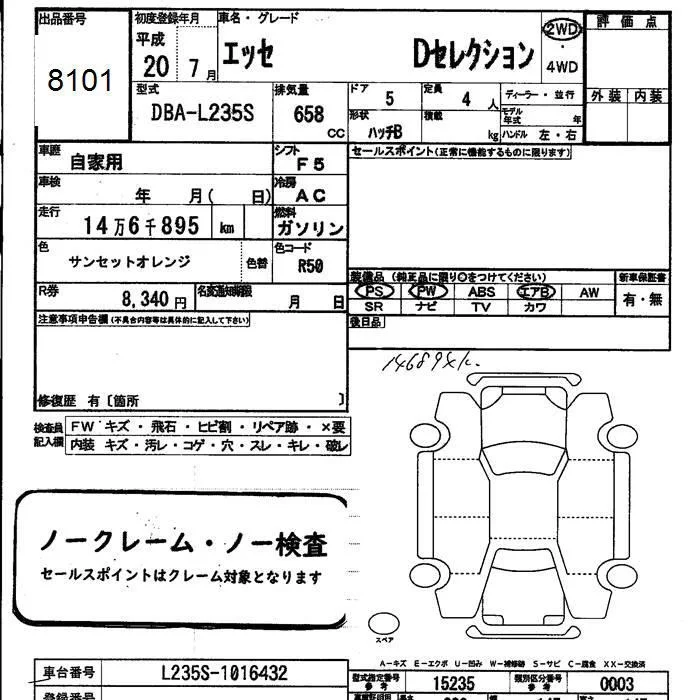 出品番号
8101
初度登録年月
平成
20 7月
車名・グレード
エッセ Dセレクション
2WD
・
4WD
評価点
外装 内装
型式
DBA-L235S
排気量
658
CC
ドア
5
定員
4 人
ディーラー・並行
形状
ハッチB
積載
kg
モデル年式 年
ハンドル 左・右
車歴
自家用
シフト
F5
セールスポイント(正常に機能するものに限ります)
車検
年 月( 日)
冷房
AC
走行
14万6千895 km
燃料
ガソリン
色
サンセットオレンジ
色替
色コード
R50
装備品 (純正品に限り○をつけてください)
新車保証書
PS PW ABS エアB AW
有・無
SR ナビ TV カワ
R券
8,340円
名変通知期限
月 日
後日品
注意事項申告欄(不具合内容等は具体的に記入して下さい)
修復歴 有〔箇所 〕
検査員
記入欄
FW キズ・飛石・ヒビ割・リペア跡・×要
内装 キズ・汚レ・コゲ・穴・スレ・キレ・破レ
ノークレーム・ノー検査
セールスポイントはクレーム対象となります
スペア
A-キズ E-エクボ U-凹み W-補修跡 S-サビ C-腐食 XX-交換済
車台番号
L235S-1016432
型式指定番号
参考
15235
類別区分番号
参考
0003
登録番号